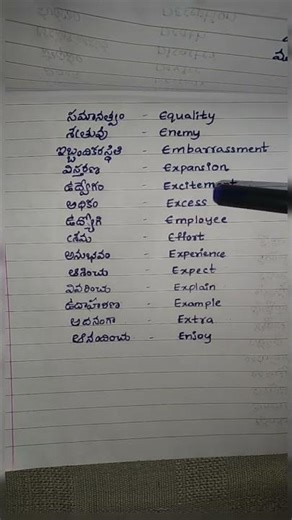 సమానత్వం - Equality
శత్రువు - Enemy
ఇబ్బందికరస్థితి - Embarrassment
విస్తరణ - Expansion
ఉద్వేగం - Excitement
అధికం - Excess
ఉద్యోగి - Employee
శ్రమ - Effort
అనుభవం - Experience
ఆశించు - Expect
వివరించు - Explain
ఉదాహరణ - Example
అదనంగా - Extra
ఆనందించు - Enjoy